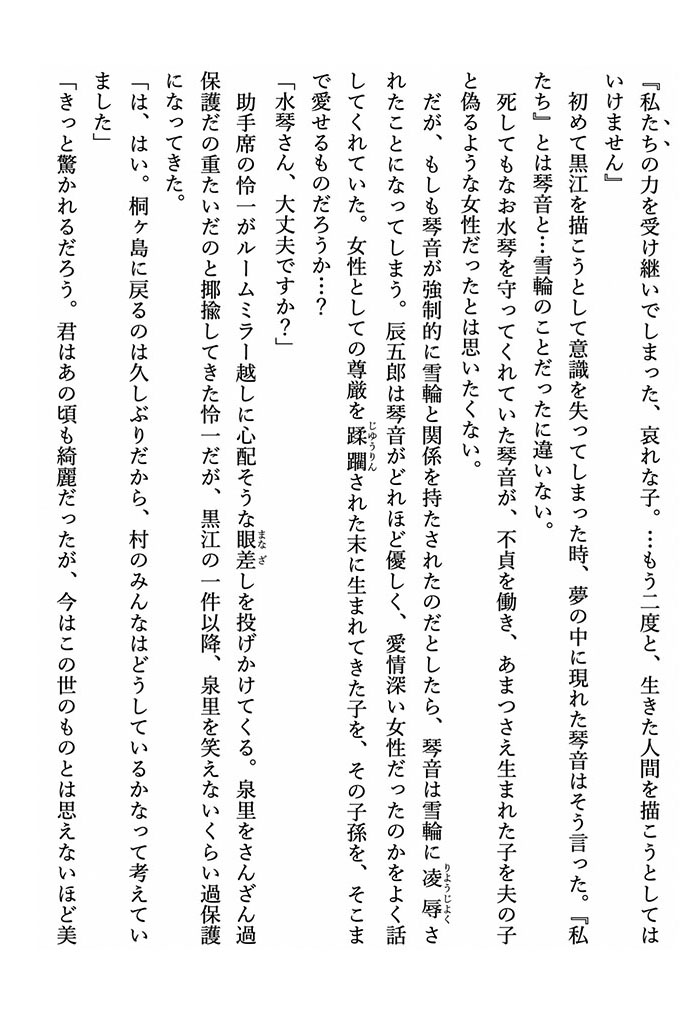 『私たちの力を受け継いでしまった、哀れな子。…もう二度と、生きた人間を描こうとしては
いけません』
　初めて黒江を描こうとして意識を失ってしまった時、夢の中に現れた琴音はそう言った。『私
たち』とは琴音と…雪輪のことだったに違いない。
　死してもなお水琴を守ってくれていた琴音が、不貞を働き、あまつさえ生まれた子を夫の子
と偽るような女性だったとは思いたくない。
　だが、もしも琴音が強制的に雪輪と関係を持たされたのだとしたら、琴音は雪輪に凌辱さ
れたことになってしまう。辰五郎は琴音がどれほど優しく、愛情深い女性だったのかをよく話
してくれていた。女性としての尊厳を蹂躙された末に生まれてきた子を、その子孫を、そこま
で愛せるものだろうか…？
「水琴さん、大丈夫ですか？」
　助手席の怜一がルームミラー越しに心配そうな眼差しを投げかけてくる。泉里をさんざん過
保護だの重たいだのと揶揄してきた怜一だが、黒江の一件以降、泉里を笑えないくらい過保護
になってきた。
「は、はい。桐ヶ島に戻るのは久しぶりだから、村のみんなはどうしているかなって考えてい
ました」
「きっと驚かれるだろう。君はあの頃も綺麗だったが、今はこの世のものとは思えないほど美